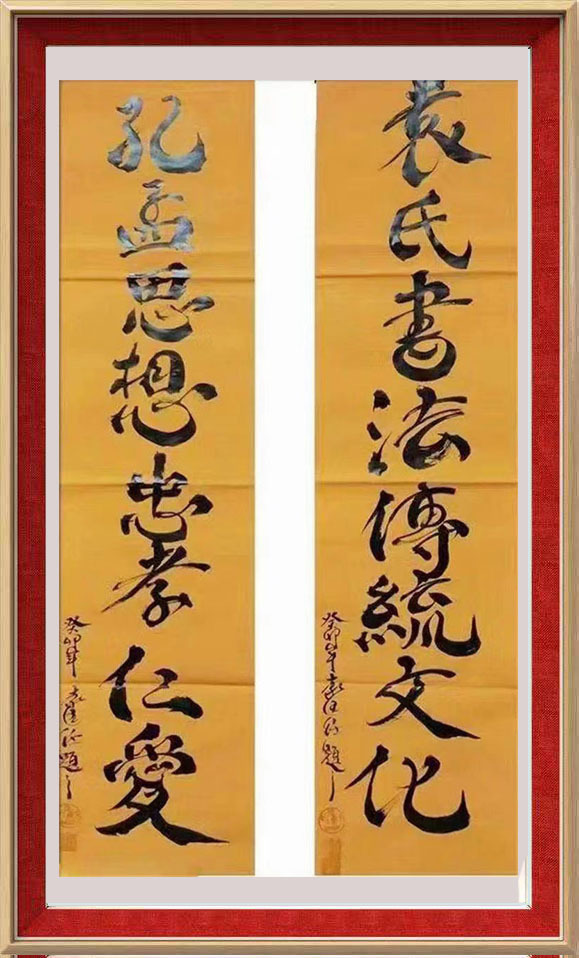 袁氏書法傳統文化
癸卯年
孔孟思想忠孝仁愛
癸卯年